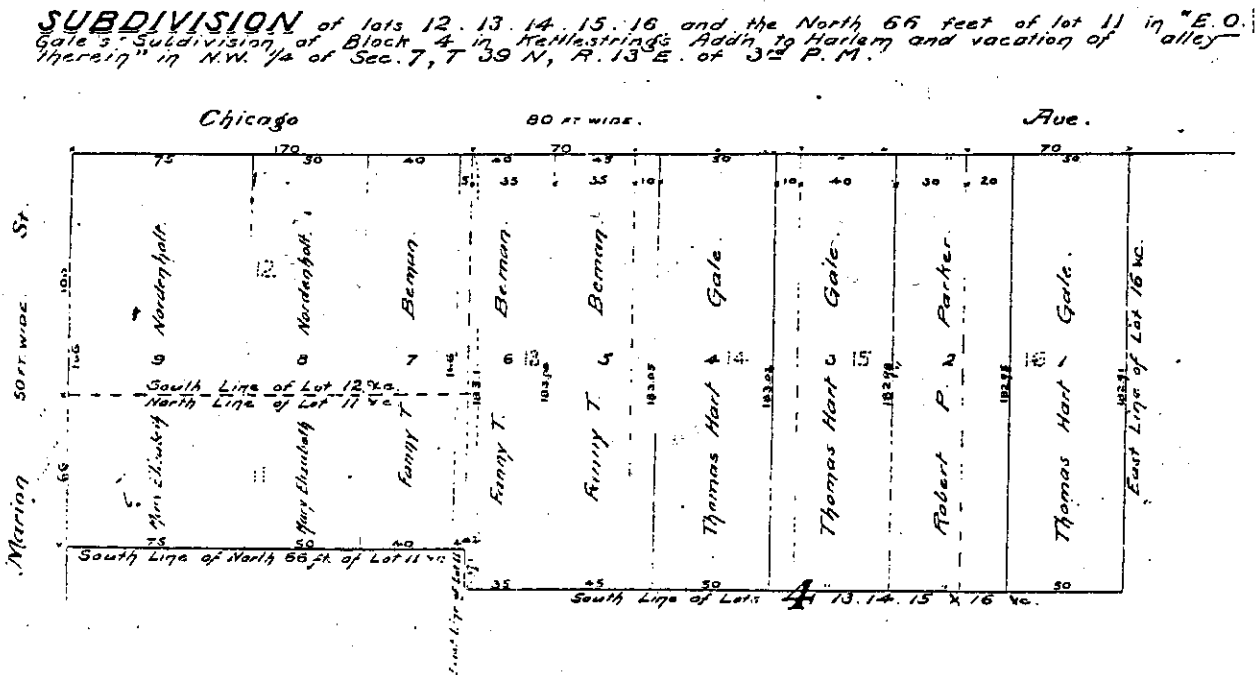 SUBDIVISION of lots 12.13.14.15.16 and the North 66 feet of lot 11 in "E.O.
Gale's Subdivision of Block 4 in Kettlestrings Add'n to Harlem and vacation of alley
therein" in N.W. 1/4 of Sec. 7, T 39 N, R. 13 E. of 3rd P.M.
Chicago 80 FT WIDE. Ave.
170 70 70
75 50 40 40 45 50 " " 50
5 35 35 10 10 40 30 20
Marion 50 FT. WIDE St.
100
166
66
Mary Elizabeth 9 Nordenholt.
12
Mary Elizabeth 8 Nordenholt.
11
Fanny T. 7 Beman
166
183.1
Fanny T. 6 Beman.
13
183.06
Fanny T. 5 Beman.
183.05
Thomas Hart 4 Gale.
14
183.02
Thomas Hart 3 Gale.
15
182.98
Robert P. 2 Parker.
182.95
16
Thomas Hart 1 Gale.
182.91
East Line of Lot 16 &c.
South Line of Lot 12 &c.
North Line of Lot 11 &c.
75 50 40
South Line of North 66 ft. of Lot 11 &c.
35 45 50 " " 50
South Line of Lots 4 13.14.15 & 16 &c.